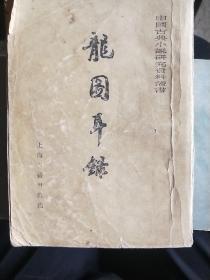 中國古典小說研究資料叢書
龍圖耳錄
上海古籍出版社